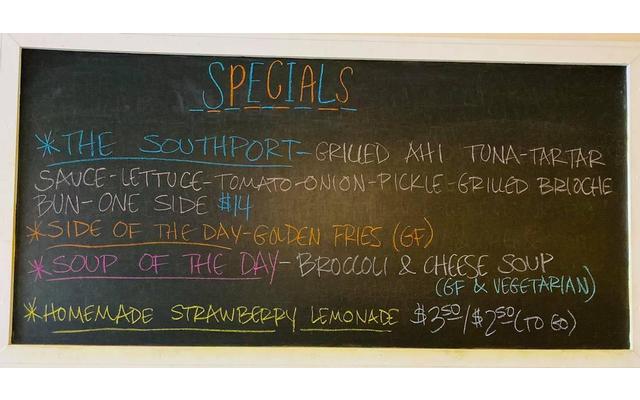 SPECIALS
*THE SOUTHPORT-GRILLED AHI TUNA-TARTAR
SAUCE-LETTUCE-TOMATO-ONION-PICKLE-GRILLED BRIOCHE
BUN-ONE SIDE $14
*SIDE OF THE DAY-GOLDEN FRIES (GF)
*SOUP OF THE DAY-BROCCOLI & CHEESE SOUP
(GF & VEGETARIAN)
*HOMEMADE STRAWBERRY LEMONADE $3.50/$2.50 (TO GO)